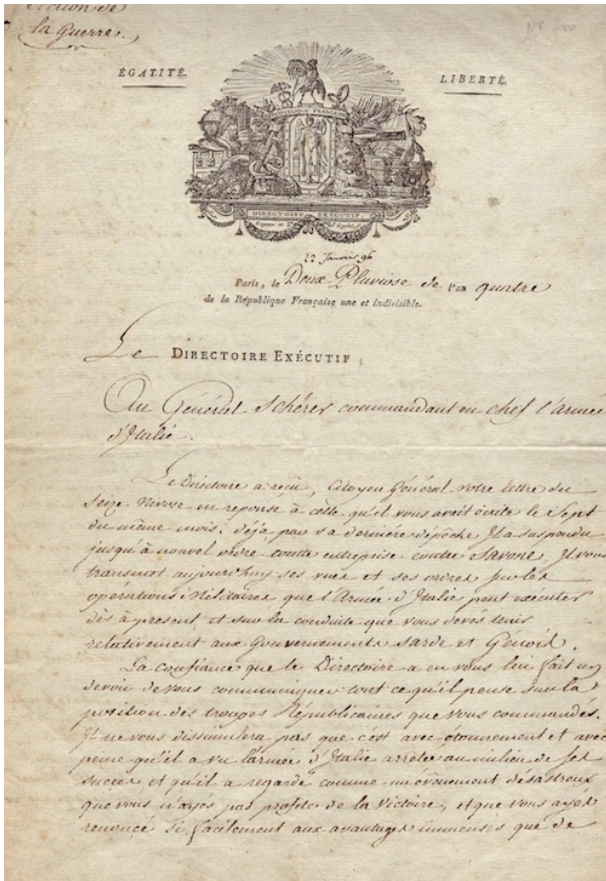 Section de
la Guerre.
ÉGALITÉ.
LIBERTÉ.
RÉPUBLIQUE FRANÇAISE
DIRECTOIRE EXÉCUTIF
22 Janvier 96
Paris, le Deux Pluviose de l'an quatre
de la République Française une et indivisible.
Le DIRECTOIRE EXÉCUTIF,
Au Général Schérer commandant en chef l'armée
d'Italie.
Le Directoire a reçu, Citoyen Général votre lettre du
seize Nivose en reponse à celle qu'il vous avait écrite le sept
du même mois. déjà, par sa dernière dépêche Il a suspendu
jusqu'à nouvel ordre toutte entreprise contre Savone, Il vous
transmet aujourdhuy ses vues et ses ordres sur les
opérations militaires que l'Armée d'Italie, peut exécuter
dès à présent et sur la conduite que vous devés tenir
relativement aux Gouvernements sarde et Génois.
La confiance que le Directoire a en vous lui fait un
devoir de vous communiquer tout ce qu'il pense sur la
position des troupes Républicaines que vous commandes.
Il ne vous dissimulera pas que c'est avec étonnement et avec
peine qu'il a vu l'armée d'Italie arrêtée au milieu de ses
succès et qu'il a regardé comme un évènement désastreux
que vous n'ayés pas profité de la Victoire, et que vous ayés
renoncé si facilement aux avantages immenses que de